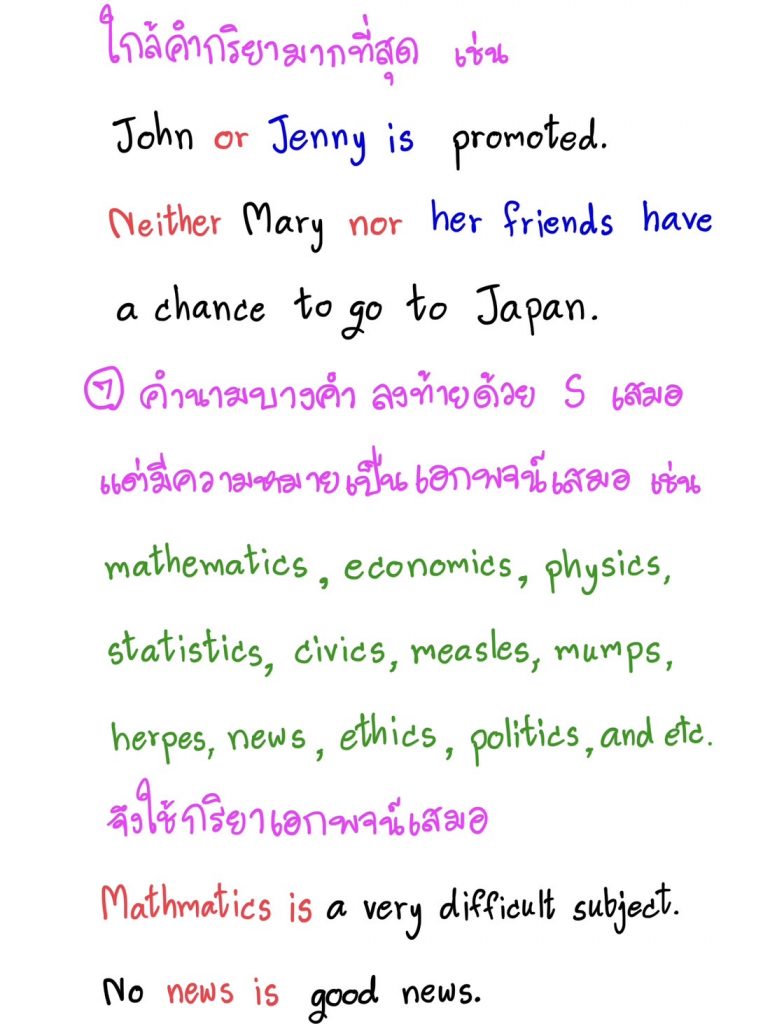 ใกล้คำกริยามากที่สุด เช่น
John or Jenny is promoted.
Neither Mary nor her friends have
a chance to go to Japan.
⑦ คำนามบางคำ ลงท้ายด้วย S เสมอ
แต่มีความหมายเป็นเอกพจน์เสมอ เช่น
mathematics, economics, physics,
statistics, civics, measles, mumps,
herpes, news, ethics, politics, and etc.
จึงใช้กริยาเอกพจน์เสมอ
Mathmatics is a very difficult subject.
No news is good news.